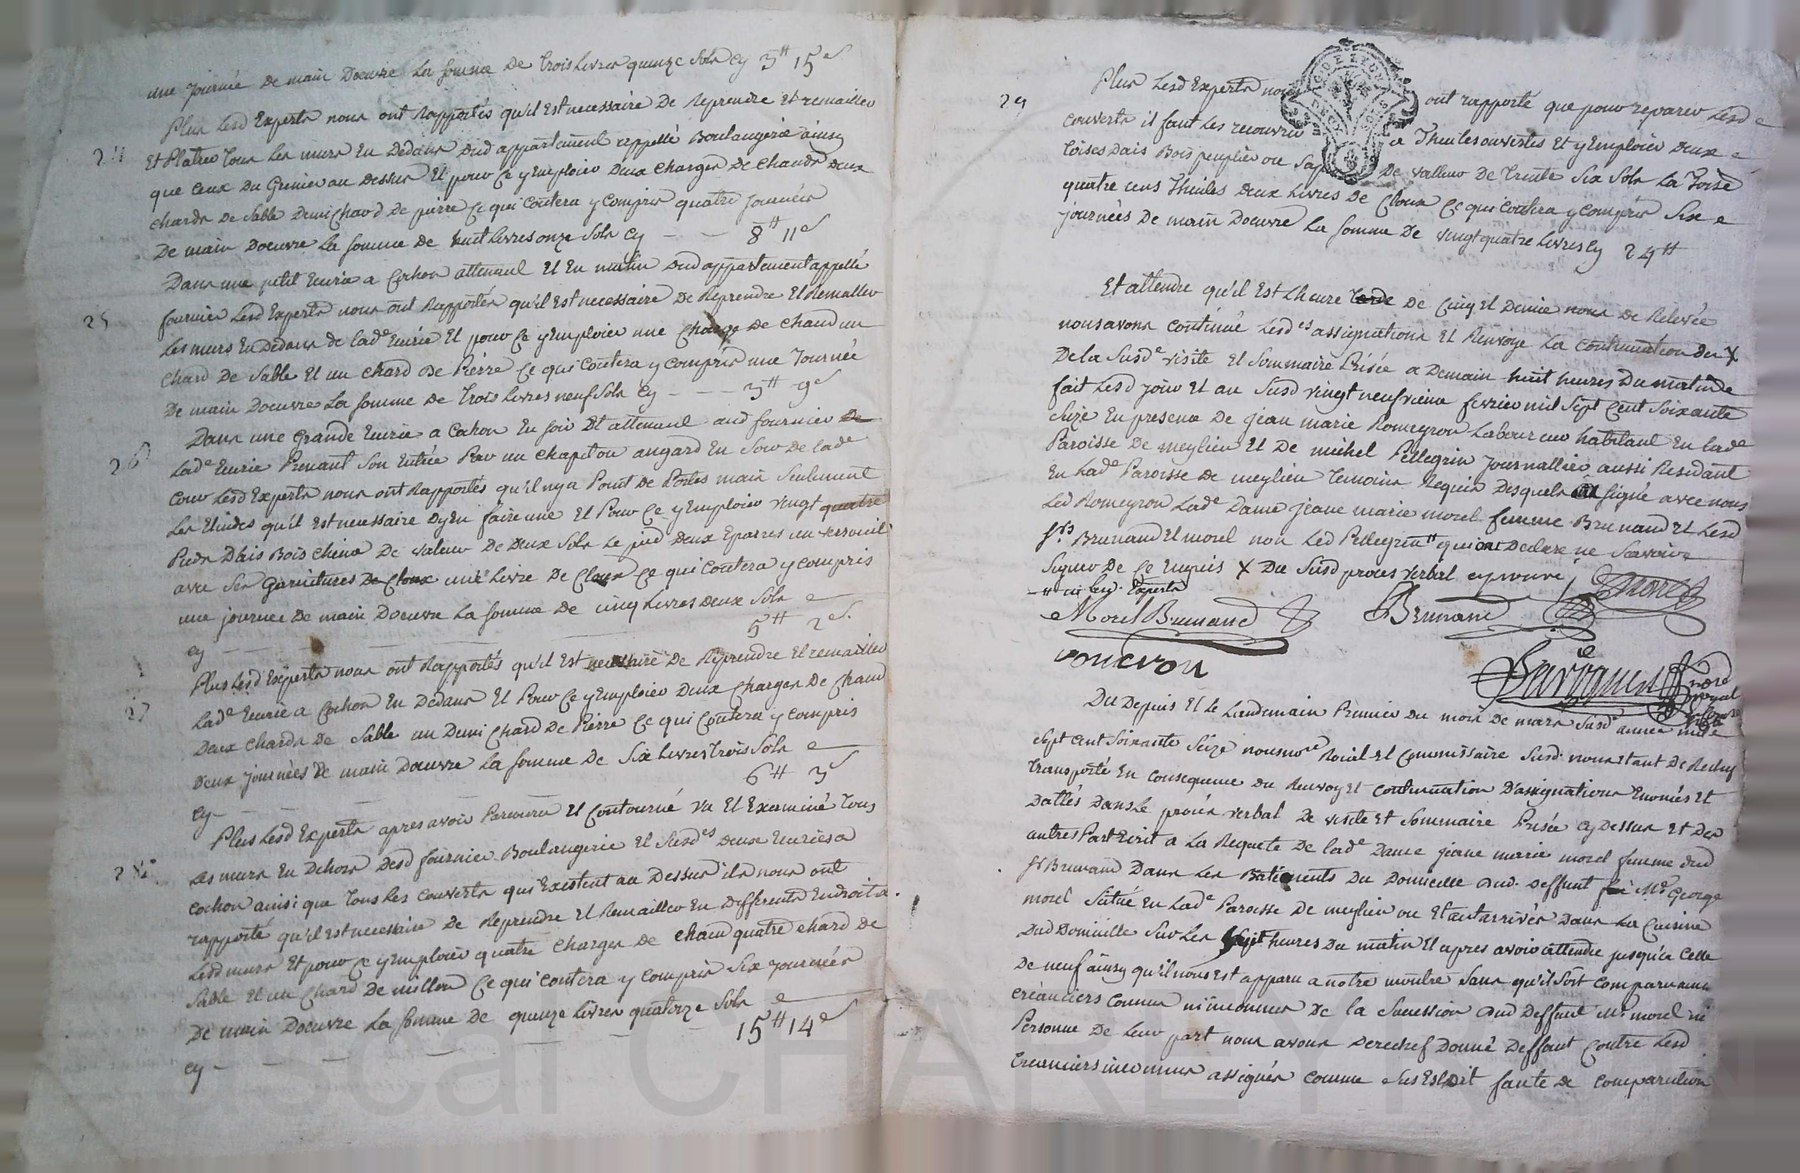 une journée de main Doeuvre La somme de trois Livres quinze Sols cy 3# 15s
Plus Lesd Experts nous ont Rapportés qu'il Est necessaire De Reprendre Et remailler
Et Platrer Tous Les murs En Dedans Dud appartement rappellé Boulangerie ainsy
24
que Ceux Du Grenier au Dessus Et pour Ce y Emploier Deux charges De chaud Deux
chards De Sable Demi chard De pierre Ce qui Coutera y Compris quatre Journées
De main Doeuvre La somme De huit Livres onze Sols Cy 8# 11s
Dans une petit Ecurie a Cochon attenant Et En matin Dud appartement appellé
25
fournier Lesd Experts nous ont Rapportés qu'il Est necessaire De Reprendre Et Remailler
Les murs En Dedans de Lade Ecurie Et pour Ce y Emploier une Charge De chaud un
chard De Sable Et un chard De Pierre Ce qui Coutera y Compris une Journée
De main Doeuvre La somme De Trois Livres neuf Sols Cy 3# 9s
Dans une Grande Ecurie a Cochon En soir Et attenant aud fournier De
26
Lade Ecurie Prenant Son Entrée Par un Chapit ou angard En Soir De Lade
Cour Lesd Experts nous ont Rapportés qu'il ny a Point De Portes mais Seulement
Les Etudes qu'il Est necessaire Dy En faire une Et Pour Ce y Emploier vingt quatre
Pieds Dhais Bois Chene De valeur De Deux Sols Le pied Deux Eparres un verrouil
avec Ses Garnitures De Cloux une Livre De Cloux Ce qui Coutera y Compris
une journée De main Doeuvre La somme De cinq Livres Deux Sols
cy 5# 2s
Plus Lesd Experts nous ont Rapportés qu'il Est necessaire De Reprendre Et remailler
27
Lade Ecurie a Cochon En Dedans Et Pour Ce y Emploier Deux Charges De Chaud
Deux Chards De Sable un Demi Chard De Pierre Ce qui Coutera y Compris
Deux journées De main Doeuvre La somme De Six Livres Trois Sols
cy 6# 3s
Plus Lesd Experts apres avoir Parcouru Et Contourné vu Et Examiné Tous
28
Les murs En Dehors Desd fournier Boulangerie Et Susdes Deux Ecuries a
Cochon ainsi que Tous Les Couverts qui Existent au Dessus ils nous ont
rapporté qu'il Est necessaire De Reprendre Et Remailler En Differents Endroits
Lesd murs Et pour Ce y Emploier quatre Charges De chaud quatre chard De
Sable Et un Chard De millon Ce qui Coutera y Compris Six journées
De main Doeuvre La somme De quinze Livres quatorze Sols
cy 15# 14s
Plus Lesd Experts nous ont rapporté que pour reparer Lesd
29
Couverts il faut Les recouvrir a Thuiles ouvertes Et y Emploier Deux
Toises Dais Bois peuplier ou Sapin De valleur De Trente Six Sols La Toise
quatre cens Thuiles Deux Livres De Cloux Ce qui Coutera y Compris Six
journées De main Doeuvre La somme De vingt quatre Livres Cy 24#
Et attendu qu'il Est Lheure Tarde De Cinq Et Demie nous De Relevée
nous avons Continué Lesdes assignations Et Renvoye La Continuation Du X
De la Susde visite Et Sommaire Prisée a Demain huit heures Du matin De
fait Lesd jour Et an Susd vingt neufvieme fevrier mil Sept Cent Soixante
Seize En presence De jean marie Romeyron Laboureur habitant En Lade
Paroisse De meylieu Et De michel Pellegrin journallier aussi Residant
En Lade Paroisse De meylieu Temoins Requis Desquels a signé avec nous
Led Romeyron Lade Dame jeane marie morel femme Brunand Et Lesd
srs Brunand Et morel non Led Pellegrin # qui ont Declare ne Scavoir
Signer De Ce Enquis X Du Susd proces verbal approuvé
# ni Lesd. Experts
Morel Brunand Brunand Morel
romeyron
Du Depuis Et Le Landemain Premier Du mois De mars Susde année mil
Sept Cent Soixante Seize nous nore Roial Et Commissaire Susd. nous Etant De Rechef
Transporté En Consequence Du Renvoy Et Continuation Dassignations Enoncés Et
Dattés Dans Le procès verbal De visite Et Sommaire Prisée Cy Dessus Et Des
autres Part Ecrit a La Requete De Lade Dame jeane marie morel femme Dud
sr Brunand Dans Les Batiments Du Domicille Dud. Deffunt Me George
morel Situé En Lade Paroisse De meylieu ou Etant arrivés Dans La Cuisine
Dud Domicille Sur Les huit heures Du matin Et apres avoir attendu jusqu'a Celle
De neuf ainsy qu'il nous Est apparu a notre montre Sans qu'il Soit Comparu aucuns
Créanciers Connus ni inconnus De la Succession Dud Deffunt Me morel ni
Personne De Leur part nous avons Derechef Donné Deffaut Contre Lesd
Creanciers inconnus assignés Comme Dus Est Dit faute de Comparution